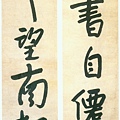 書自僊
望南